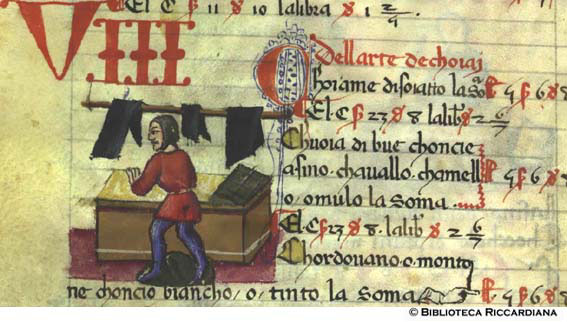 El C ß 11 δ 10 lalibra δ 1 2/9
VIII
Dellarte dechoiaj
Choiame disfatto la ß 9 δ 6 δ 8
El C ß 23 δ 8 lalib δ 2 6/7
Chuoia di bue choncie
asino chauallo chamell ß 9 δ 6 δ 8
o omulo la soma
El C ß 23 δ 8 lalib δ 2 6/7
Chordouano o monto
ne choncio biancho o tinto la soma ß 9 δ 6 δ 8
© BIBLIOTECA RICCARDIANA